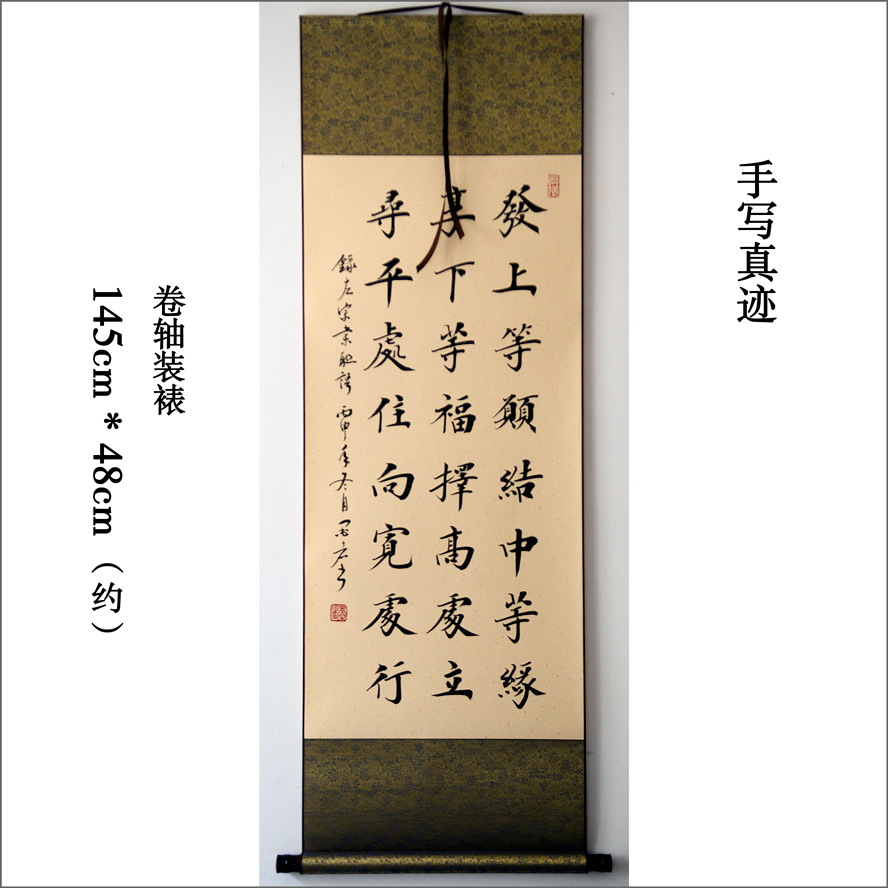 手写真迹
發上等願結中等緣
享下等福擇高處立
尋平處住向寬處行
錄左宗棠聯語 丙申年冬月
卷轴装裱
145cm * 48cm（约）